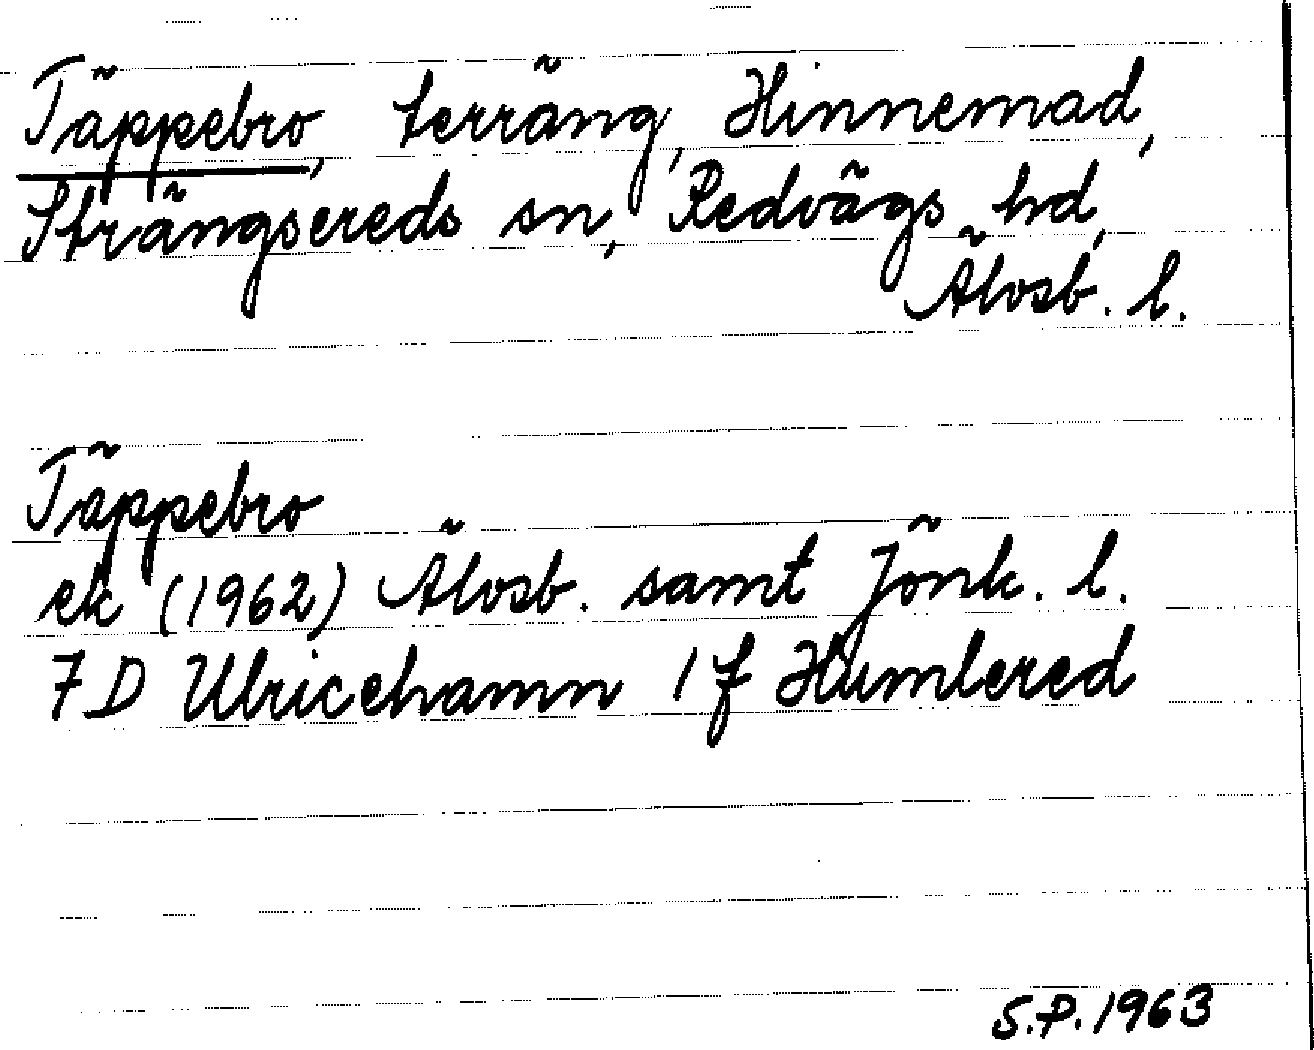 Täppebro, terräng, Hinnemad,
Strängsereds sn, Redvägs hd,
Älvsb. l.
Täppebro
ek (1962) Älvsb. samt Jönk. l.
7D Ulricehamn 1f Humlered
S.P. 1963